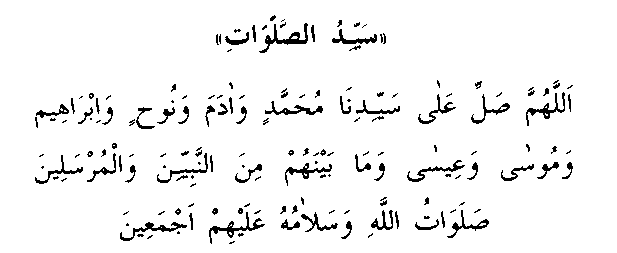 «سَيِّدُ الصَّلَوَاتِ»
اَللَّهُمَّ صَلِّ عَلٰى سَيِّدِنَا مُحَمَّدٍ وَاٰدَمَ وَنُوحٍ وَاِبْرَاهِيم
وَمُوسٰى وَعِيسٰى وَمَا بَيْنَهُمْ مِنَ النَّبِيِّينَ وَالْمُرْسَلِينَ
صَلَوَاتُ اللَّهِ وَسَلَامُهُ عَلَيْهِمْ اَجْمَعِينَ